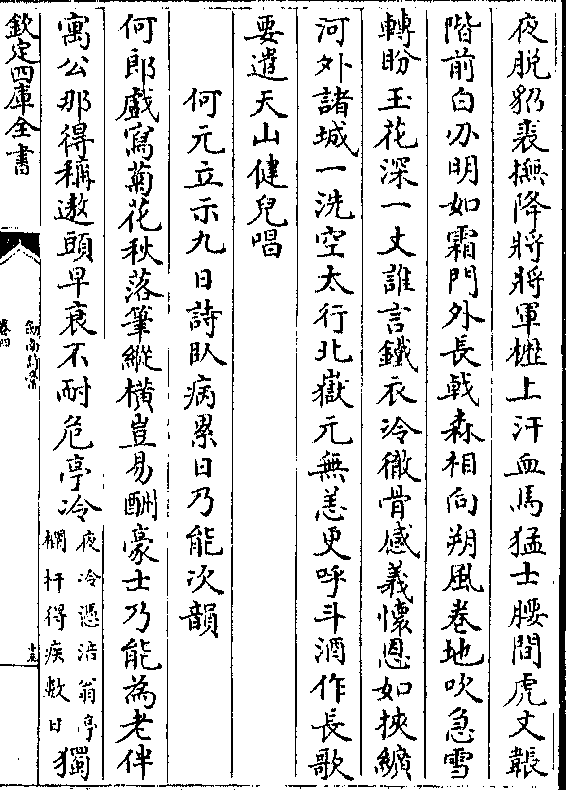 夜脫貂裘撫降將將軍櫪上汗血馬猛士腰間虎文韔
階前白刃明如霜門外長戟森相向朔風卷地吹急雪
轉盼玉花深一丈誰言鐵衣冷徹骨感義懷恩如挾纊
河外諸城一洗空太行北嶽元無恙更呼斗酒作長歌
要遣天山健兒唱
何元立示九日詩臥病累日乃能次韻
何郎戲寫菊花秋落筆縱橫豈易酬豪士乃能為老伴
寓公那得稱遨頭早衰不耐危亭冷夜冷憑涪翁亭欄杆得疾數日獨
欽定四庫全書
劍南詩稾
卷四